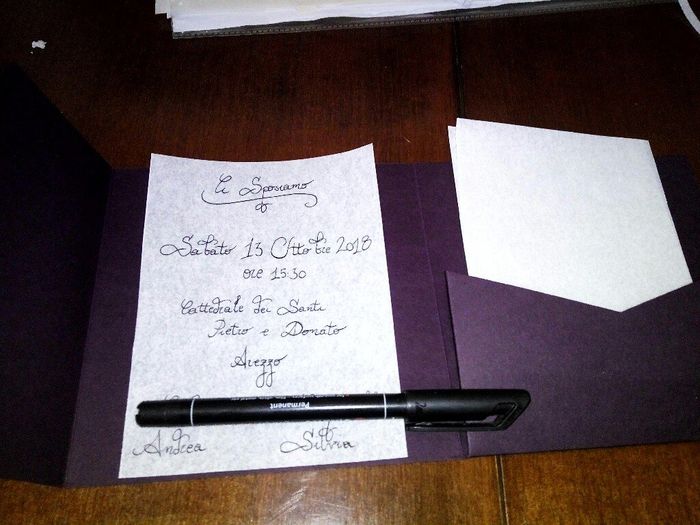 Ci Sposiamo
Sabato 13 Ottobre 2018
ore 15:30
Cattedrale dei Santi
Pietro e Donato
Arezzo
Permanent
Andrea Silvia